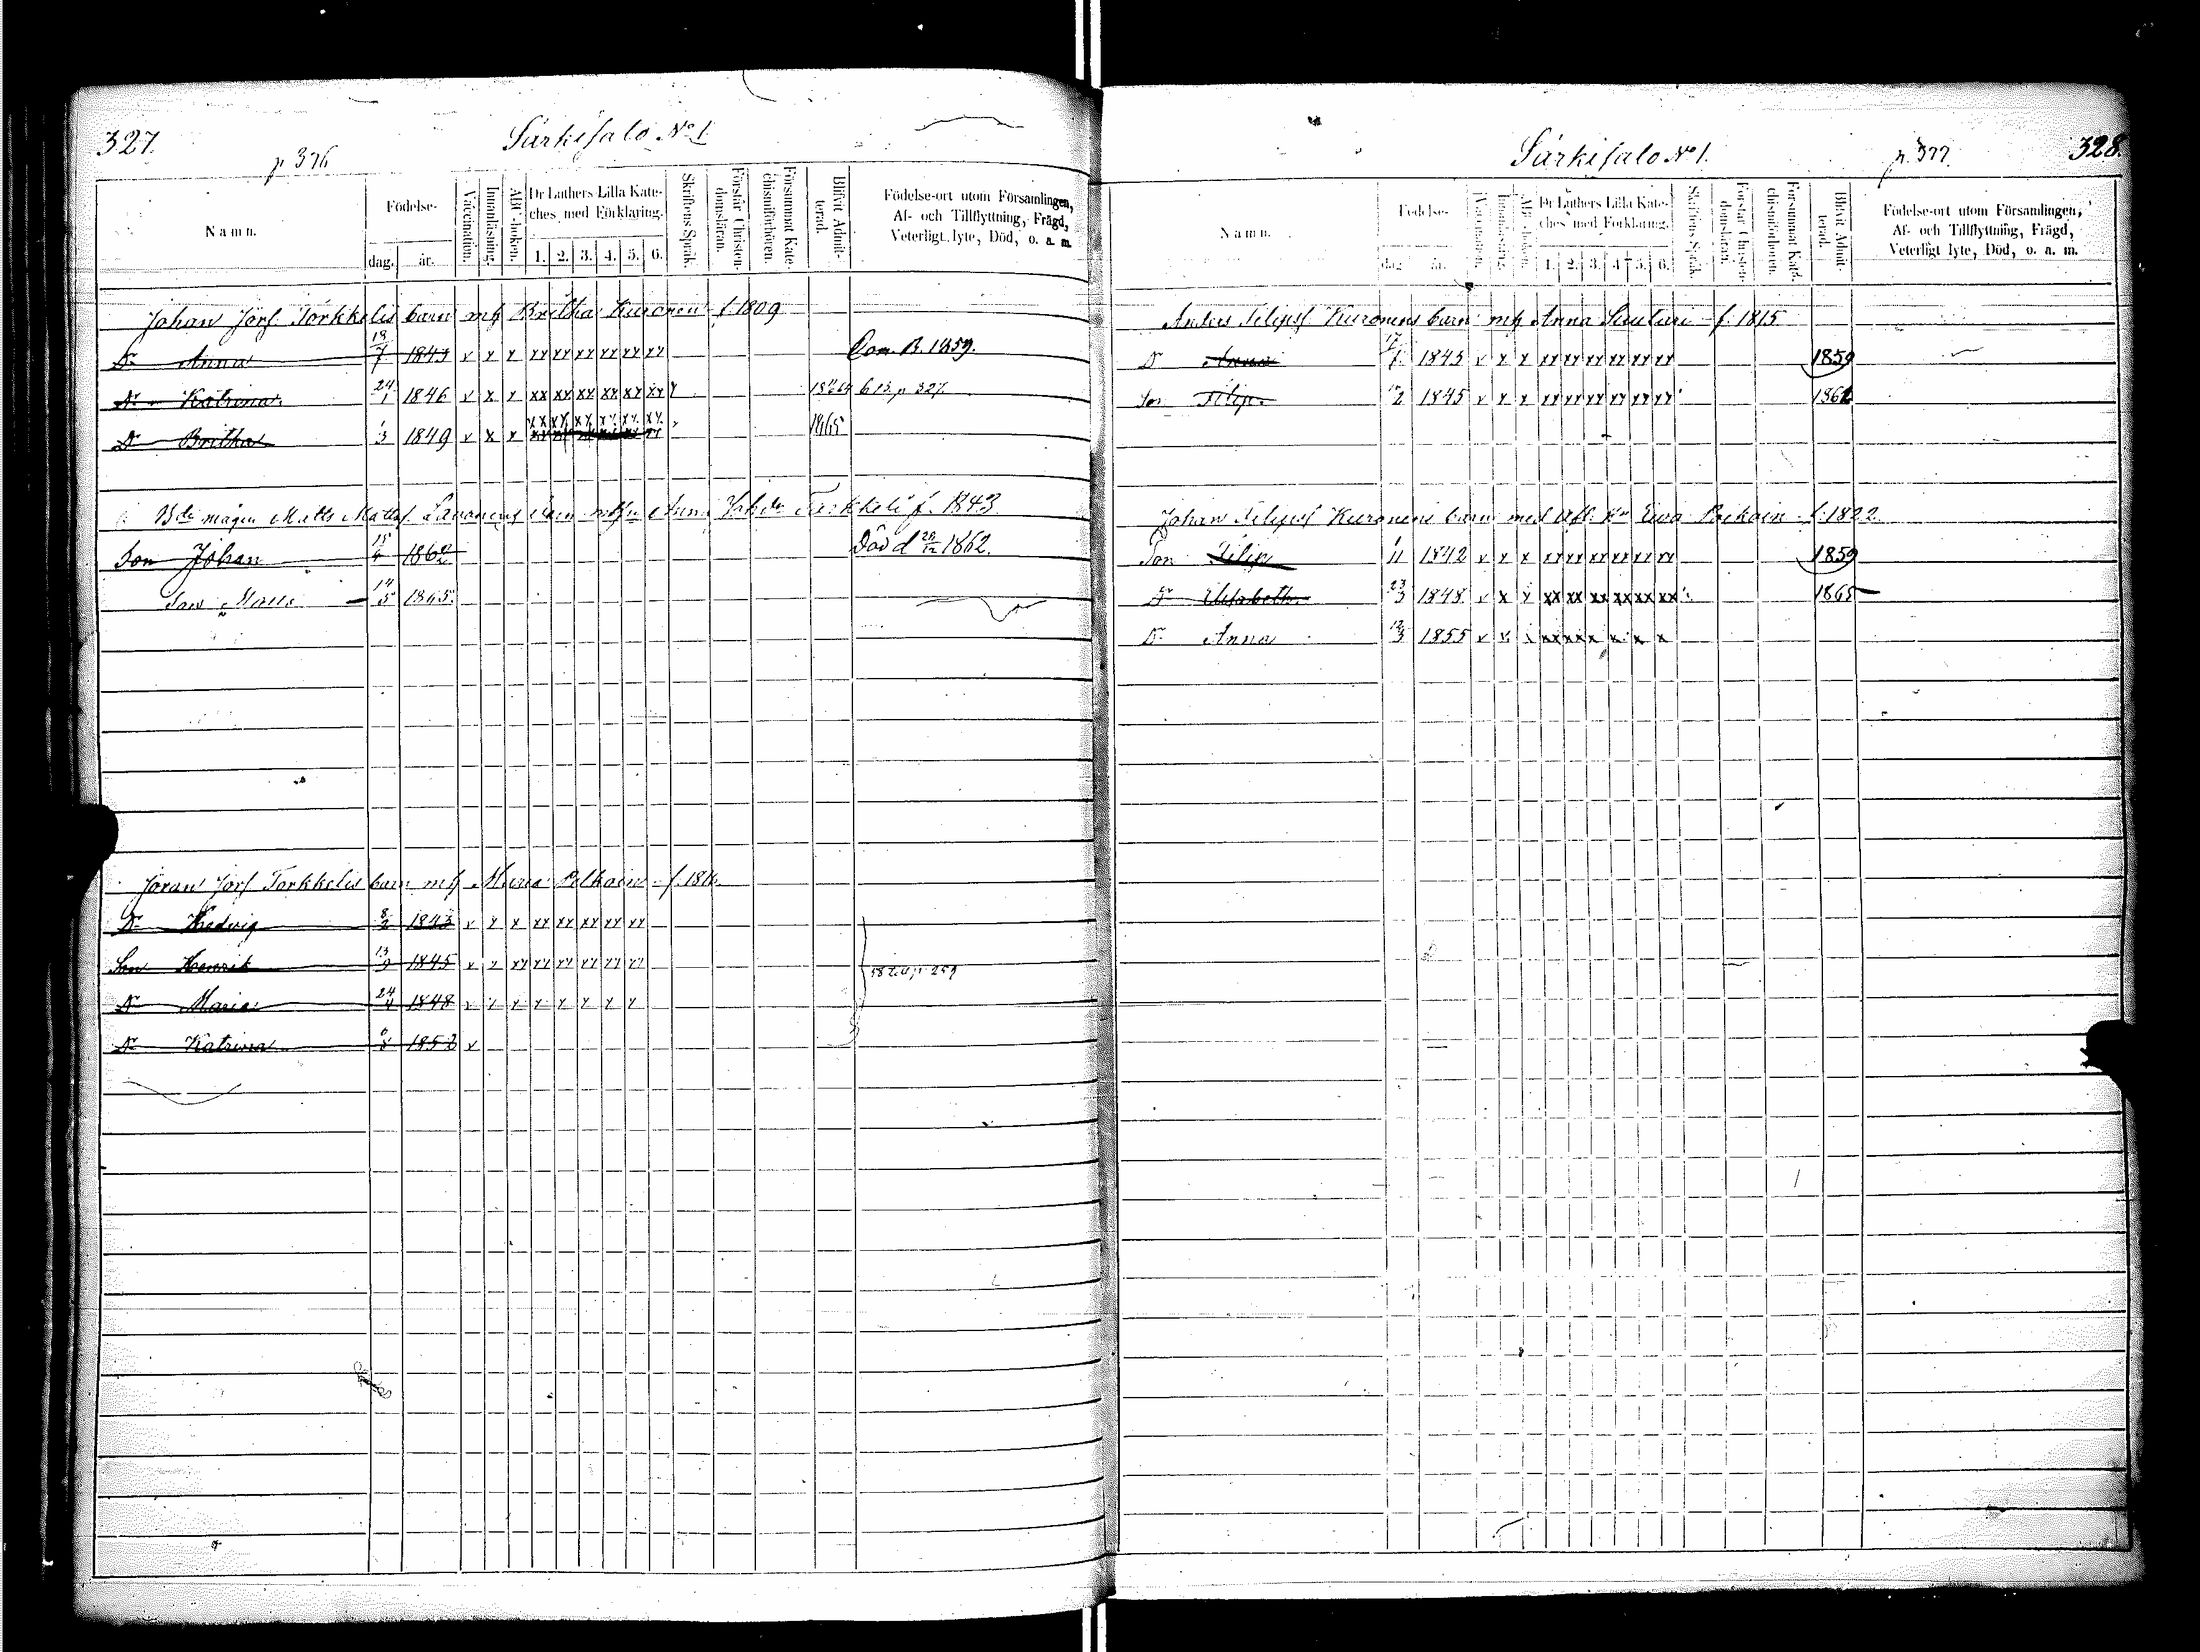 327.
p 376
Särkisalo No 1
Namn.
Födelse-
dag.
år.
Vaccination.
Innanläsning.
ABC-boken.
Dr Luthers Lilla Kate-
ches med Förklaring.
1. 2. 3. 4. 5. 6.
Skriftens Språk.
Förstår Christen-
domsläran.
Försummat Kate-
chismiförhören.
Blifvit Admit-
terad.
Födelse-ort utom Församlingen,
Af- och Tillflyttning, Frägd,
Veterligt lyte, Död, o. a. m.
Johan Jörs. Torkkelis barn m h Britha Kuronen f. 1809
Dr Anna 1843 x x x xx xx xx xx xx xx B. 1859.
Dr Katrina 24/1 1846 x x x xx xx xx xx xx xx p 327
Dr Britha 1/3 1849 x x x xx xx xx xx xx xx 1865
mågen Matts Matts. barn Anna Torkkeli f. 1843
Son Johan 15/4 1862 Död d 28/12 1862.
Son Matts 14/5 1865.
Göran Jörs Torkkelis barn m h Maria Pelkoin f. 1816.
Dr Hedvig 8/2 1843 x x x xx xx xx xx xx
Son Henrik 13/9 1845 x x xx xx xx xx xx xx
Dr Maria 24/4 1848 x x x x x x x x
Dr Katrina 1852 x
p 259
Särkisalo No 1.
p. 377
328.
Namn.
Födelse-
dag.
år.
Vaccination.
Innanläsning.
ABC-boken.
Dr Luthers Lilla Kate-
ches med Förklaring.
1. 2. 3. 4. 5. 6.
Skriftens Språk.
Förstår Christen-
domsläran.
Försummat Kate-
chismiförhören.
Blifvit Admit-
terad.
Födelse-ort utom Församlingen,
Af- och Tillflyttning, Frägd,
Veterligt lyte, Död, o. a. m.
Anders Filips Kuronens barn m h Anna f. 1815
Dr Anna 1843 x x x xx xx xx xx xx xx 1859
Son Filip 1845 x x x xx xx xx xx xx xx 1862
Johan Filips Kuronens barn med afl. Hu Ewa f. 1822
Son Filip 1/11 1842 x x x xx xx xx xx xx xx 1859
Dr Elisabeth 23/3 1848 x x x xx xx xx xx xx xx 1865
Dr Anna 12/3 1855 x x x xx xx x x x x